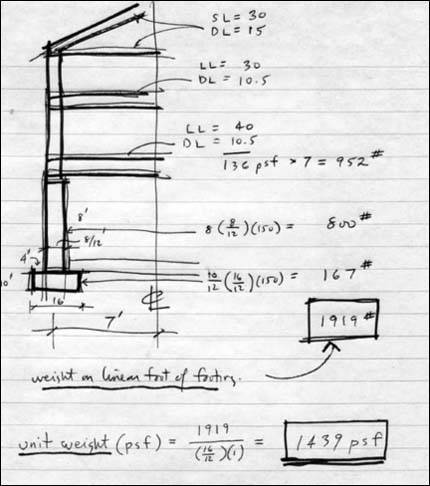 SL = 30
DL = 15
LL = 30
DL = 10.5
LL = 40
DL = 10.5
136 psf × 7 = 952#
8'
8/12'
8 (8/12)(150) = 800#
4'
10'
16
10/12 (16/12)(150) = 167#
℄
7'
1919#
weight on linear foot of footing.
unit weight (psf) = 1919 / (16/12)(1) = 1439 psf